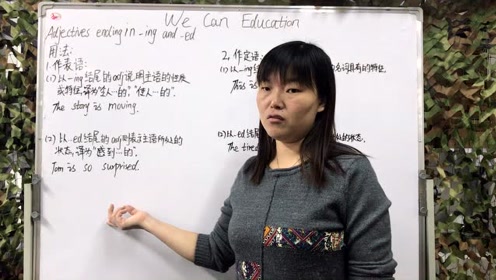 We Can Education
Adjectives ending in -ing and -ed
用法:
1. 作表语:
(1) 以-ing结尾的adj说明主语的性质
或特征,译为"令人…的","使人…的".
The story is moving.
(2) 以-ed结尾的adj则表示主语所处的
状态,译为"感到…的".
Tom is so surprised.
2. 作定语:
(1) 以-ing结
名词具有的特征.
This is
(2) 以-ed结尾
的状态.
The tired